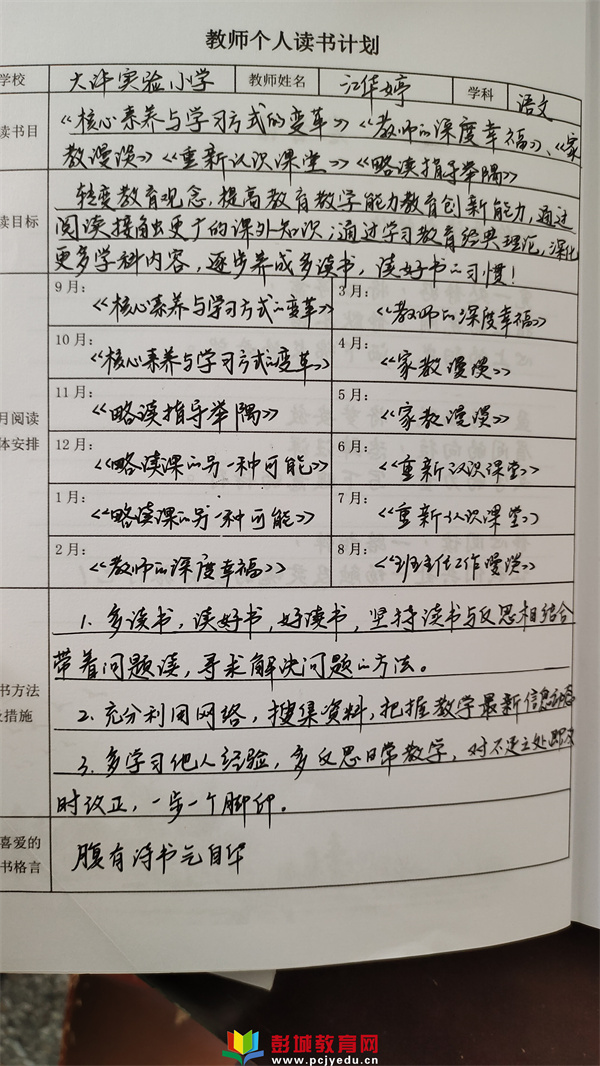 教师个人读书计划
学校 大沣实验小学 教师姓名 江华婷 学科 语文
读书目 《核心素养与学习方式的变革》《教师的深度幸福》、《家
教漫谈》《重新认识课堂》《略读指导举隅》
转变教育观念,提高教育教学能力教育创新能力,通过
读目标 阅读接触更广的课外知识;通过学习教育经典理论,深化
更多学科内容,逐步养成多读书,读好书的习惯!
9月: 《核心素养与学习方式的变革》 3月: 《教师的深度幸福》
10月: 《核心素养与学习方式的变革》 4月: 《家教漫谈》
月阅读
体安排
11月: 《略读指导举隅》 5月: 《家教漫谈》
12月: 《略读课的另一种可能》 6月: 《重新认识课堂》
1月: 《略读课的另一种可能》 7月: 《重新认识课堂》
2月: 《教师的深度幸福》 8月: 《班主任工作漫谈》
1.多读书,读好书,好读书,坚持读书与反思相结合
带着问题读,寻求解决问题的方法。
书方法
及措施
2.充分利用网络,搜集资料,把握教学最新信息动态
3.多学习他人经验,多反思日常教学,对不足之处即及
时改正,一步一个脚印。
喜爱的
书格言
腹有诗书气自华
彭城教育网
www.pcjyedu.cn